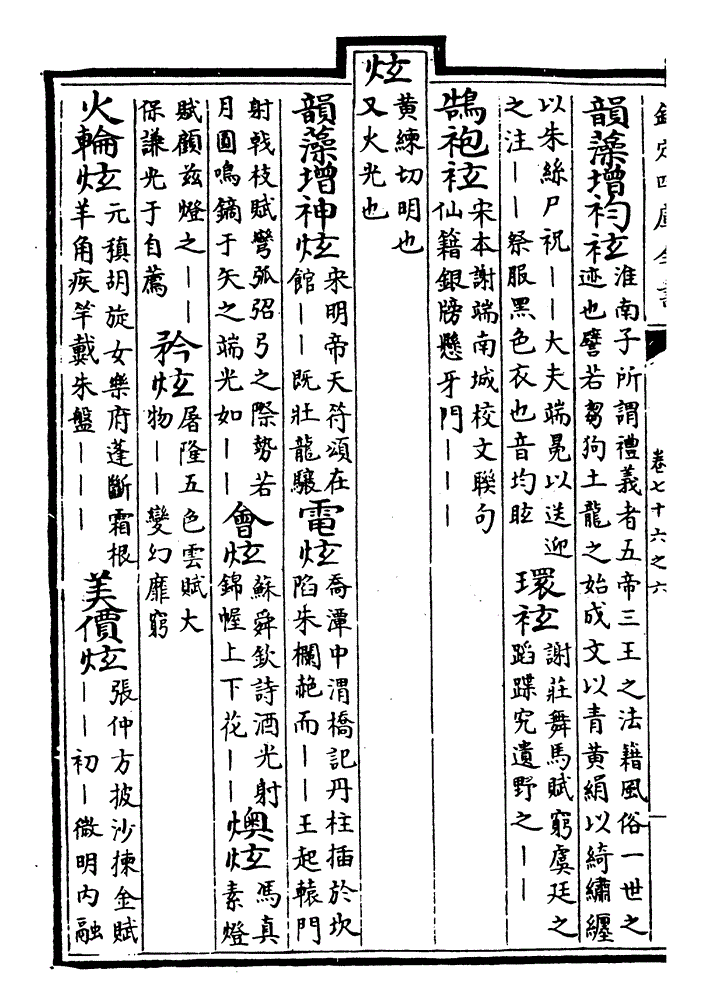 欽定四庫全書 卷七十六之六
韻藻增袀袨 淮南子所謂禮義者五帝三王之法籍風俗一世之
迹也譬若芻狗土龍之始成文以青黄絹以綺繡纏
以朱絲尸祝——大夫端冕以送迎
之注——祭服黑色衣也音均眩
環袨 謝莊舞馬賦窮虞廷之
蹈蹀究遺野之——
鵠袍袨 宋本謝端南城校文聯句
仙籍銀牓懸牙門———
炫 黄練切明也
又火光也
韻藻增神炫 宋明帝天符頌在
館——既壯龍驤
電炫 喬潭中渭橋記丹柱插於坎
陷朱欄赩而——王起轅門
射戟枝賦彎弧弨弓之際勢若
月圓鳴鏑于矢之端光如——
會炫 蘇舜欽詩酒光射
錦幄上下花——
燠炫 馮真
素燈
賦顧兹燈之——
保謙光于自薦
矜炫 屠隆五色雲賦大
物——變幻靡窮
火輪炫 元稹胡旋女樂府蓬斷霜根
羊角疾竿戴朱盤———
美價炫 張仲方披沙揀金賦
——初—微明内融